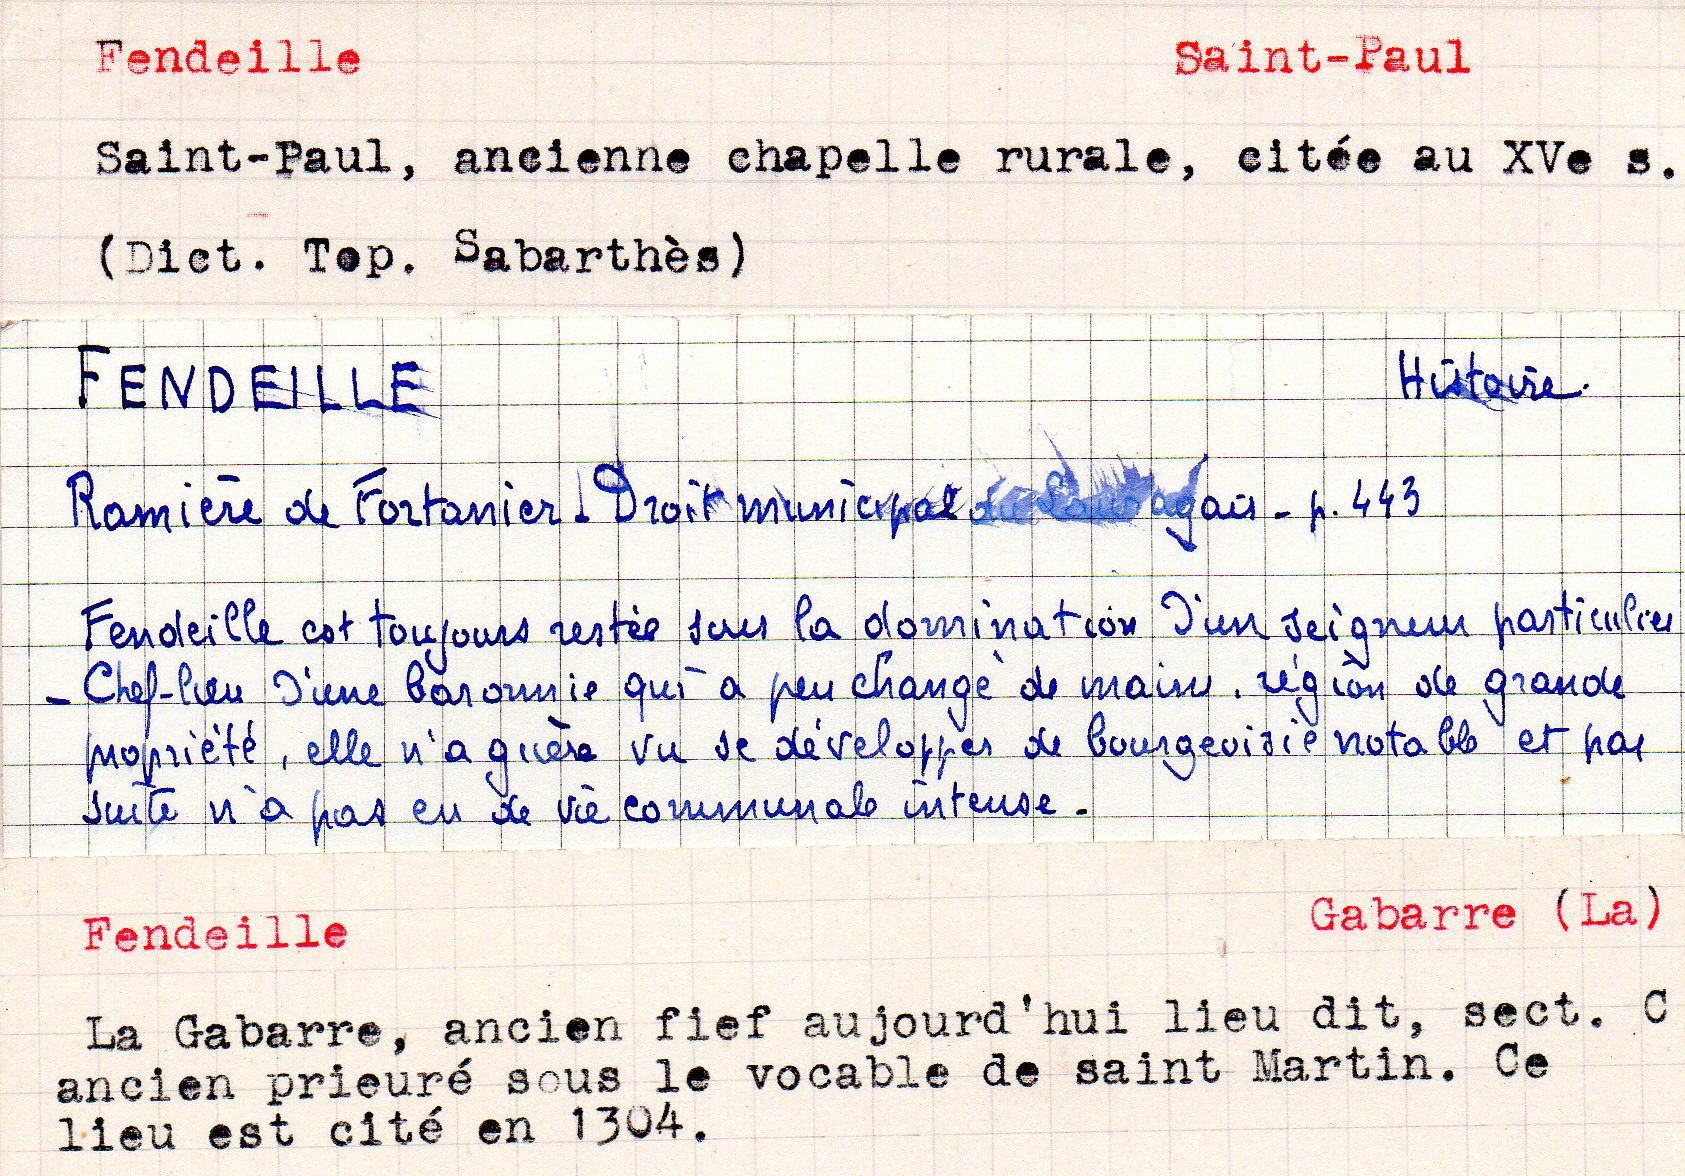 Fendeille Saint-Paul
Saint-Paul, ancienne chapelle rurale, citée au XVe s.
(Dict. Top. Sabarthès)
FENDEILLE Histoire.
Ramière de Fortanier - Droit municipal du Lauragais - p. 443
Fendeille est toujours restée sous la domination d'un seigneur particulier
- Chef-lieu d'une baronnie qui a peu changé de mains. région de grande
propriété, elle n'a guère vu se développer de bourgeoisie notable et par
suite n'a pas eu de vie communale intense -
Fendeille Gabarre (La)
La Gabarre, ancien fief aujourd'hui lieu dit, sect. C
ancien prieuré sous le vocable de saint Martin. Ce
lieu est cité en 1304.